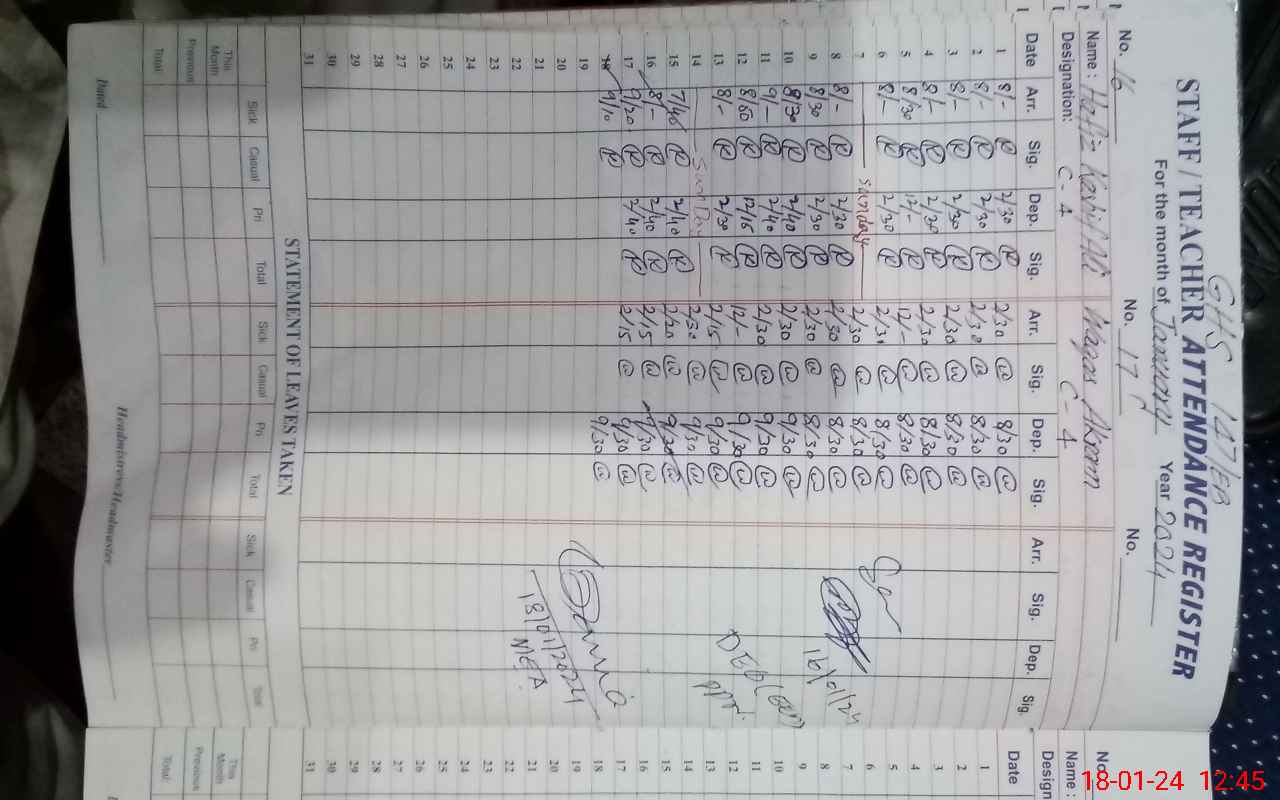 GHS 147/EB
STAFF / TEACHER ATTENDANCE REGISTER
For the month of January Year 2024
No. 16 No. 17 No.
Name : Hafiz Kashif Ali Waqas Akram
Designation: C-4 C-4
Date Arr. Sig. Dep. Sig. Arr. Sig. Dep. Sig. Arr. Sig. Dep. Sig.
1 8/- R 2/30 R 2/30 W 8/30 W
2 8/- R 2/30 R 2/30 W 8/30 W
3 8/- R 2/30 R 2/30 W 8/30 W
4 8/- R 2/30 R 2/30 W 8/30 W
5 8/30 R 12/- R 12/- W 8/30 W
6 8/- R 2/30 R 2/30 W 8/30 W
7 Sunday 2/30 W 8/30 W
8 8/- R 2/30 R 2/30 W 8/30 W
9 8/30 R 2/30 R 2/30 W 8/30 W
10 8/30 R 2/40 R 2/30 W 9/30 W
11 9/- R 2/40 R 2/30 W 9/30 W
12 R 12/15 R 12/- W 9/30 W
13 8/- R 2/30 R 2/15 W 9/30 W
14 Sunday 2/30 W 9/30 W
15 7/40 R 2/40 R W 9/30 W
16 8/- R 2/40 R 2/15 W 9/30 W
17 9/20 R 2/40 R 2/15 W 9/30 W
18 9/10 R 9/30 W
19
20
21
22
23
24
25
26
27
28
29
30
31
16/01/24
DEO
18/01/2024
MEA
STATEMENT OF LEAVES TAKEN
Sick Casual Pri Total Sick Casual Pri Total Sick Casual Pri Total
This Month
Previous
Total
Dated
Headmistress/Headmaster
No.
Name :
Design
Date
1
2
3
4
5
6
7
8
9
10
11
12
13
14
15
16
17
18
19
20
21
22
23
24
25
26
27
28
29
30
31
This Month
Previous
Total
18-01-24 12:45